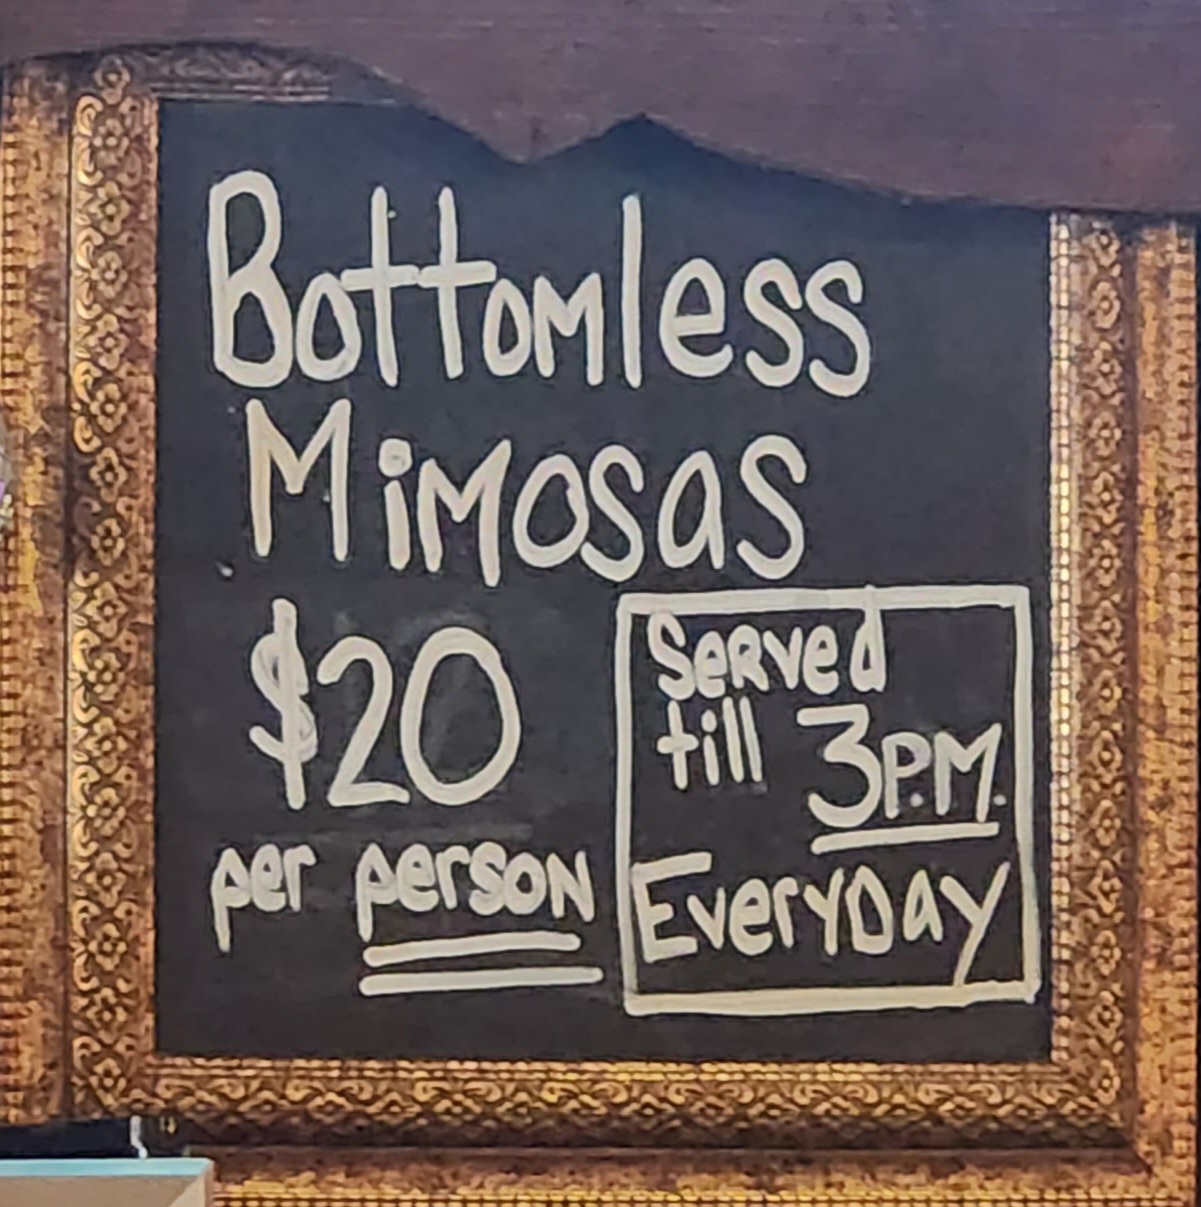 Bottomless
Mimosas
$20
per person
Served
till 3P.M.
Everyday